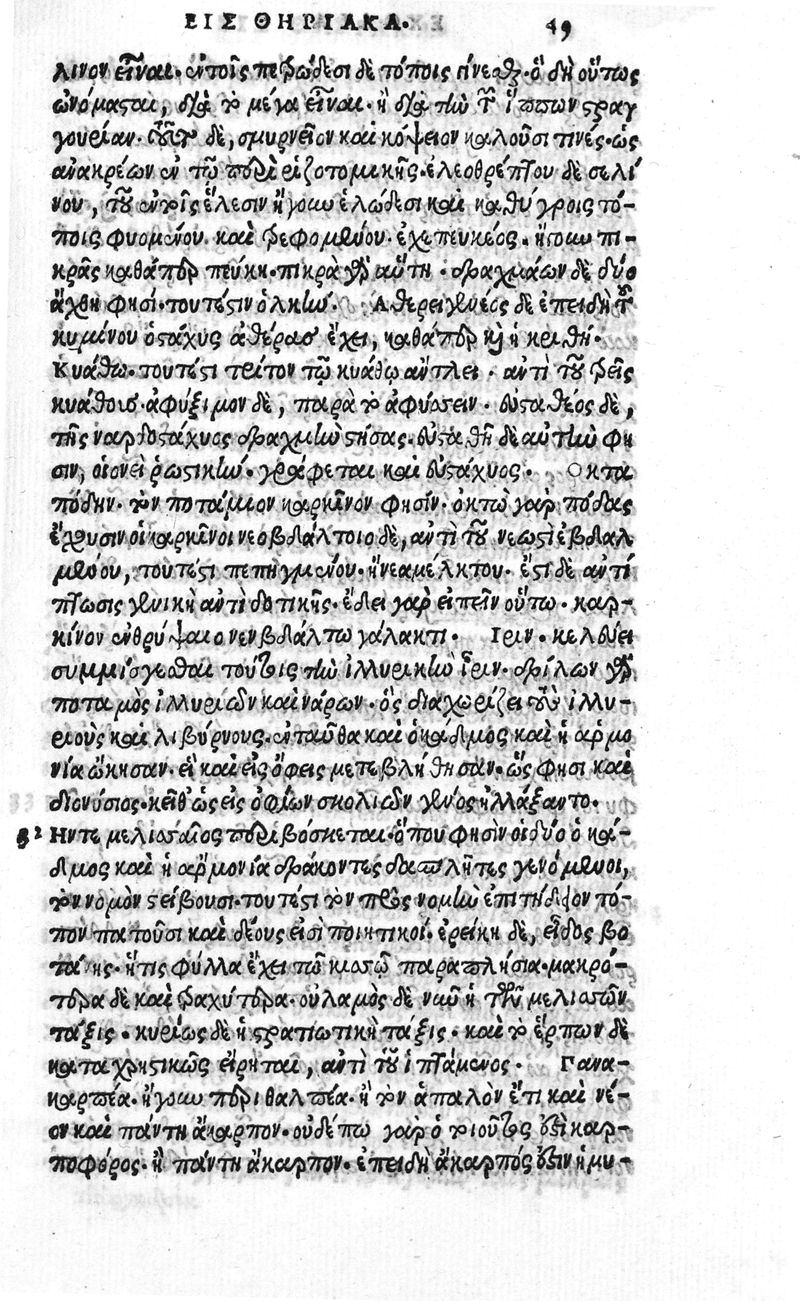 ΕΙΣ ΘΗΡΙΑΚΑ. 49
λινον εἶναι. ἐν τοῖς πετρώδεσι δὲ τόποις γίνεσθ. ὃ δὴ οὕτως
ὠνόμασται, διὰ τὸ μέγα εἶναι. ἢ διὰ τὴν τῶν ἵππων στραγ
γουρίαν. τοῦτο δὲ, σμυρνεῖον καὶ κόψειον καλοῦσι τινές. ὡς
ἀνακρέων ἐν τῷ περὶ ῥιζοτομικῆς. ἑλεοθρέπτου δὲ σελί
νου, τοῦ ἐν τοῖς ἕλεσιν ἤγουν ἑλώδεσι καὶ καθύγροις τό-
ποις φυομένου. καὶ τρεφομένου. ἐχεπευκέος. ἤγουν πι-
κρᾶς καθάπερ πεύκη. πικρὰ γὰρ αὕτη. δραχμάων δὲ δύο
ἄχθη φησί. τουτέστιν ὁλκὴν. Ἀθερειγενέος δὲ ἐπειδὴ τοῦ
κυμίνου ὁ στάχυς ἀθέρας ἔχει, καθάπερ καὶ ἡ κριθή.
Κυάθῳ. τουτέστι τρίτον τῷ κυάθῳ ἀντλει. ἀντι τοῦ τρεῖς
κυάθους. ἀφύξιμον δὲ, παρὰ τὸ ἀφύσσειν. εὐσταθέος δὲ,
τῆς ναρδοστάχυος δραχμὴν στήσας. εὐσταθῆ δὲ αὐτὴν φη
σιν, οἱονεὶ ῥωστικὴν. γράφεται καὶ εὐστάχυος. Οκτα
πόδην. τὸν ποτάμιον καρκῖνον φησίν. ὀκτὼ γὰρ πόδας
ἔχουσιν οἱ καρκῖνοι νεοβδάλτοιο δὲ, ἀντὶ τοῦ νεωστὶ ἐβδαλ
μένου, τουτέστι πεπηγμένου. ἢ νεαμέλκτου. ἔστι δὲ ἀντί
πτωσις γενικὴ ἀντὶ δοτικῆς. ἔδει γὰρ εἰπεῖν οὕτω. καρ-
κίνον ἐνθρύψαιο νεοβδάλτῳ γάλακτι. Ιριν. κελεύει
συμμίσγεσθαι τούτοις τὴν ἰλλυρικὴν ἶριν. δρίλων γὰρ
ποταμὸς ἰλλυριῶν καὶ νάρων. ὃς διαχωρίζει τοὺς ἰλλυ-
ριοὺς καὶ λιβύρνους. ἐνταῦθα καὶ ὁ κάδμος καὶ ἡ ἁρμο
νία ᾤκησαν. εἰ καὶ εἰς ὄφεις μετεβλήθησαν. ὥς φησι καὶ
διονύσιος. κεῖθ' ὡς εἰς ὀφίων σκολιῶν γένος ἠλλάξαντο.
Ηντε μελισσαῖος περιβόσκεται. ὅπου φησὶν οἱ δύο ὁ κά-
δμος καὶ ἡ ἁρμονία δράκοντες δασπλῆτες γενόμενοι,
τὸν νομὸν στείβουσι. τουτέστι τὸν πρὸς νομὴν ἐπιτήδειον τό-
πον πατοῦσι καὶ δέους εἰσὶ ποιητικοί. ἐρείκη δὲ, εἶδος βο
τάνης. ἥτις φύλλα ἔχει τῷ κισσῷ παραπλήσια. μακρό-
τερα δὲ καὶ τραχύτερα. οὐλαμὸς δὲ νῦν ἡ τῶν μελισσῶν
τάξις. κυρίως δὲ ἡ στρατιωτικὴ τάξις. καὶ τὸ ἕρπων δὲ
καταχρηστικῶς εἴρηται, ἀντὶ τοῦ ἱπτάμενος. Γανα-
καρπέα. ἤγουν περιθαλπέα. ἢ τὸν ἁπαλὸν ἔτι καὶ νέ-
ον καὶ πάντη ἄκαρπον. οὐδέπω γὰρ ὁ τοιοῦτος ἐστὶ καρ-
ποφόρος. ἢ πάντη ἄκαρπον. ἐπειδὴ ἄκαρπός ἐστιν ἡ μυ-